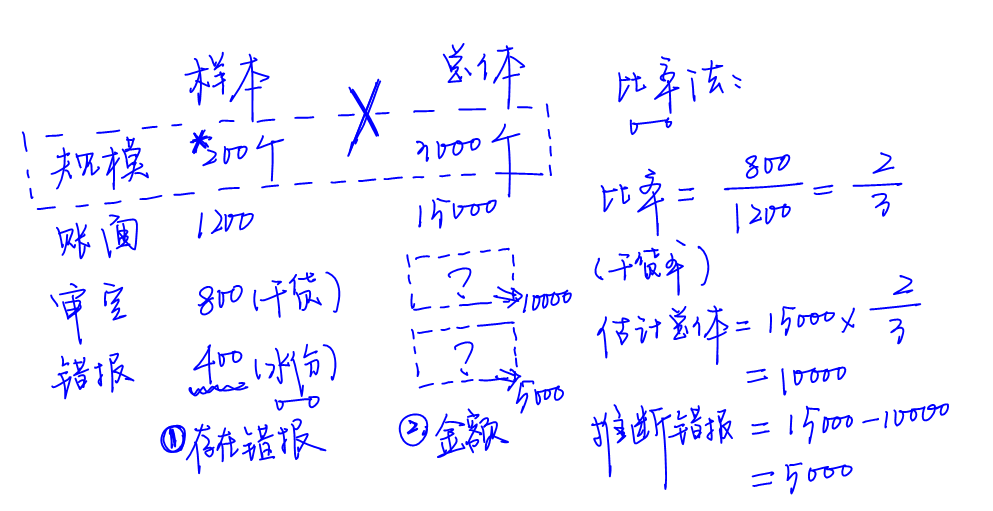 样本 总体
规模 *200个 3000个
账面 1200 15000
审定 800(干货) ? →10000
错报 400(水份) ? →5000
①存在错报 ②金额
比率法:
比率 = 800/1200 = 2/3
(干货率)
估计总体 = 15000 × 2/3
= 10000
推断错报 = 15000-10000
= 5000